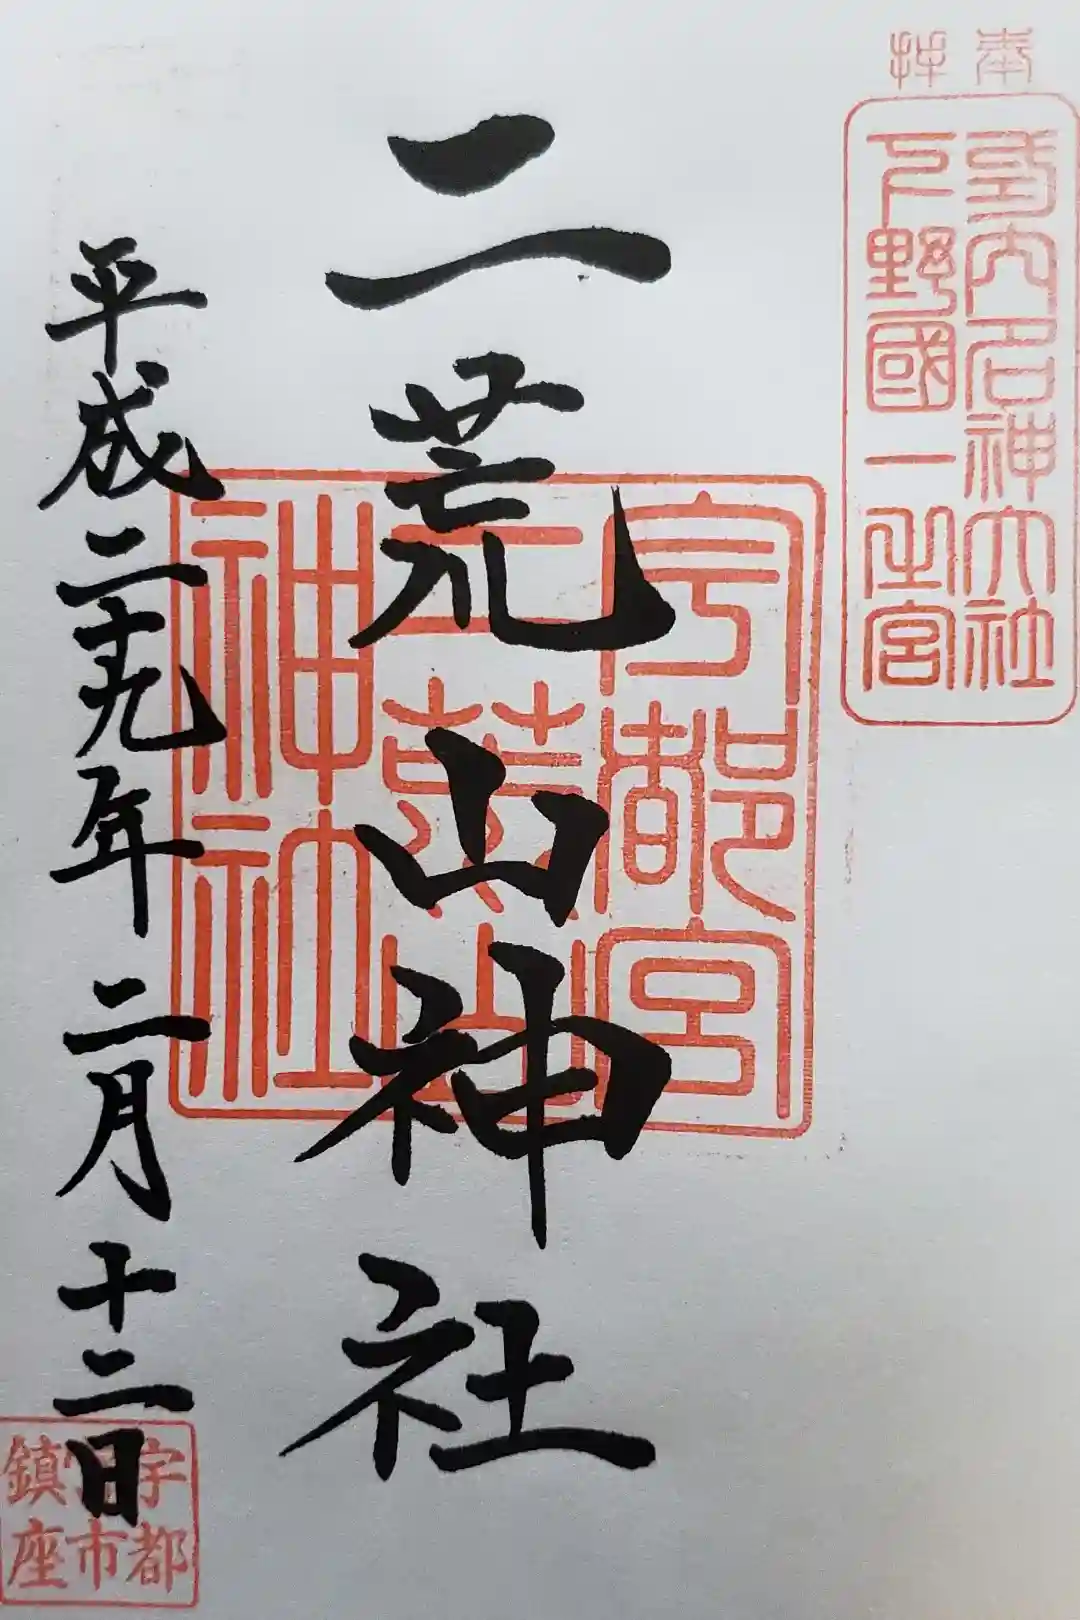 奉拝
式内名神大社
下野國一之宮
二荒山神社
宇都宮
二荒山
神社
平成二十九年二月十二日
宇都
宮市
鎮座